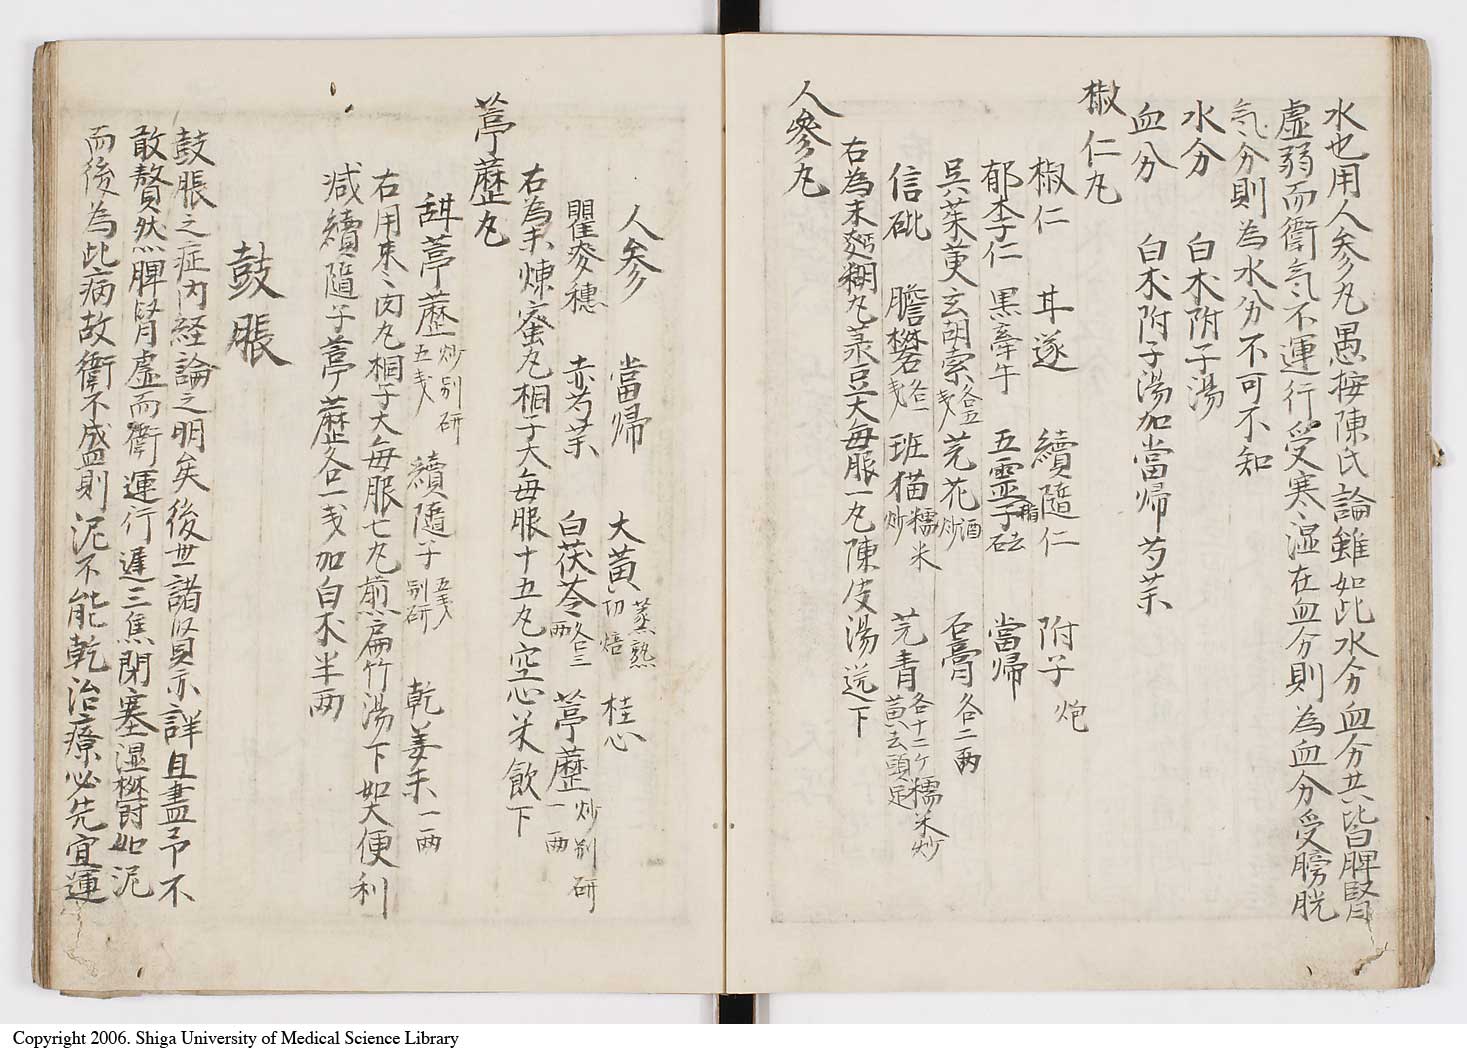 水也用人参丸愚按陳氏論雖如此水分血分共皆脾腎
虚弱而衛気不運行受寒湿在血分則為血分受膀胱
気分則為水分不可不知
水分 白朮附子湯
血分 白朮附子湯加當帰芍薬
椒仁丸
椒仁 甘遂 續隨仁 附子 炮
郁李仁 黒牽牛 五靈脂 當帰
呉茱萸 玄胡索 各五戔 芫花 酒炒 石膏 各二両
信砒 膽礬 各一戔 班猫 糯米炒 芫青 各十二ケ糯米炒黄去頭足
右為末麪糊丸菉豆大毎服一丸陳皮湯送下
人參丸
人参 當帰 大黄 蒸熟切焙 桂心
瞿麥穗 赤芍薬 白茯苓 各三両 葶藶 炒別研一両
右為末煉蜜丸梧子大毎服十五丸空心米飲下
葶藶丸
甜葶藶 炒別研五戔 續隨子 五戔別研 乾姜末一両
右用棗肉丸梧子大毎服七丸煎扁竹湯下如大便利
减續隨子葶藶各一戔加白朮半両
鼓脹
鼓脹之症内経論之明矣後世諸賢亦詳且盡予不
敢贅然脾腎虚而衛運行遅三焦閉塞湿欝如泥
而後為此病故衛不盛則泥不能乾治療必先宜運
Copyright 2006. Shiga University of Medical Science Library